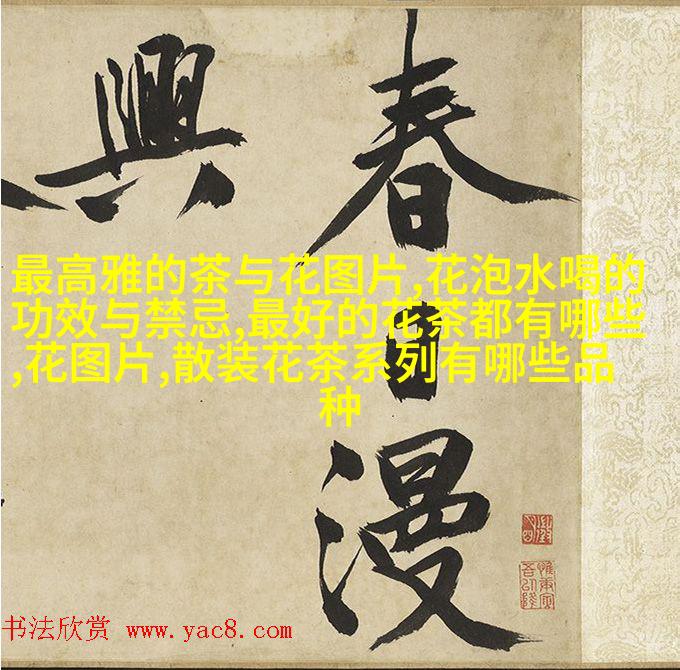 春日漫
興
最高雅的茶与花图片,花泡水喝的
功效与禁忌,最好的花茶都有哪些
,花图片,散装花茶系列有哪些品
种
书法欣赏 www.yac8.com